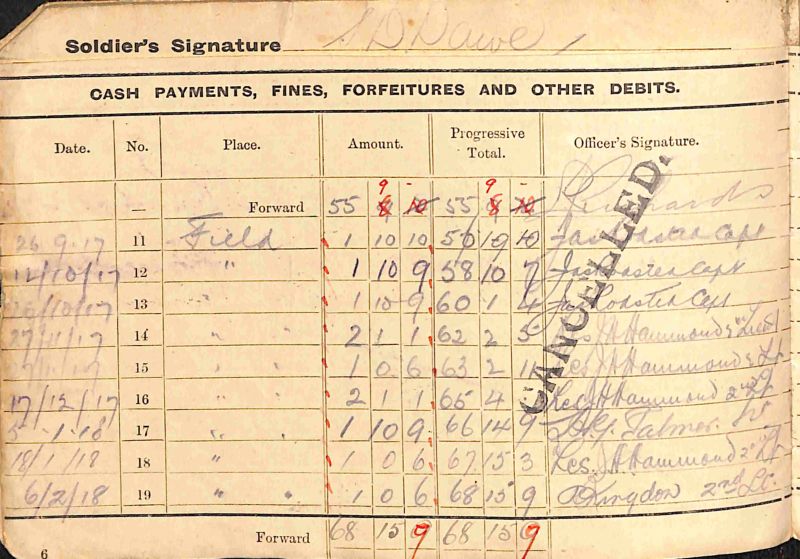 Soldier's Signature S D Dawe
CASH PAYMENTS, FINES, FORFEITURES AND OTHER DEBITS.
Date. No. Place. Amount. Progressive Total. Officer's Signature.
9 - 9 -
— Forward 55 8 10 55 8 10
26 9 17 11 Field 1 10 10 56 19 10 Capt
12/10/17 12 " 1 10 9 58 10 7 Capt
26/10/17 13 " 1 10 9 60 1 4 Capt
14 " " 2 1 1 62 2 5 Hammond 2nd Lieut
15 " " 1 0 6 63 2 11 Hammond 2 Lt
17/12/17 16 " " 2 1 1 65 4 Hammond 2nd Lt
5 - 1 - 18 17 " " 1 10 9 66 14 9 Palmer. Lt
18/1/18 18 " " 1 0 6 67 15 3 Hammond 2nd Lt
6/2/18 19 " " 1 0 6 68 15 9 Kingdon 2nd Lt.
CANCELLED.
Forward 68 15 9 68 15 9
6